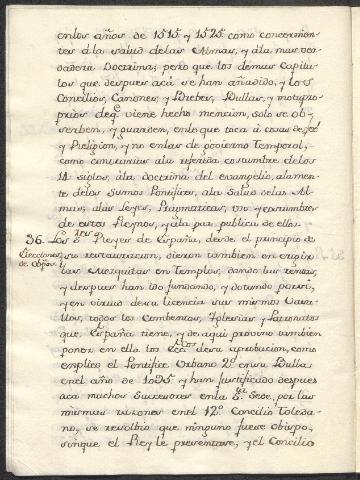 en los años de 1515, y 1525 como concernien-
tes á la salud de las Almas, y á la mas ver-
dadera Doctrina; pero que los demas Capitu-
los que despues acá se han añadido, y los
Concilios, Canones, y Breves, Bullas, y motupro-
prios de q.e viene hecho mencion, solo se ob-
serben, y guarden, en lo que toca á cosas de feé
y Religion, y no en las de govierno Temporal,
como contrarias ála referida costumbre de los
14 siglos, ála doctrina del evangelio, ála mente
de los Sumos Pontifices, ála Salud de las Al-
mas, álas Leyes, Pragmaticas, uso y costumbres
de estos Reynos, y ála paz publica de ellos.
36. Los S.res Reyes de España, desde el principio de
Elecciones
de Obispos.
su restauracion, dieron tambien en erigir
las Mezquitas en Templos, dando las rentas,
y despues han ido fundando, y dotando por sí,
y en virtud de su licencia sus mismos Vasa-
llos, todos los Combentos, Iglesias y Patronatos
que España tiene, y de aquí provino tambien
poner en ella los Ecc.cos de su aprobacion, como
explico el Pontifice Urbano 2.º en su Bulla
en el año de 1095 y han justificado despues
acá muchos Succesores en la S.ta Sede, por las
mismas razones en el 12.º Concilio Toleda-
no, se resolbio que ninguno fuese obispo,
sin que el Rey le presentase, y el Concilio